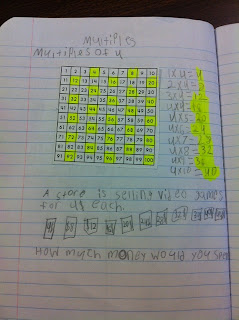 Multiples
Multiples of 4
1 2 3 4 5 6 7 8 9 10
11 12 13 14 15 16 17 18 19 20
21 22 23 24 25 26 27 28 29 30
31 32 33 34 35 36 37 38 39 40
41 42 43 44 45 46 47 48 49 50
51 52 53 54 55 56 57 58 59 60
61 62 63 64 65 66 67 68 69 70
71 72 73 74 75 76 77 78 79 80
81 82 83 84 85 86 87 88 89 90
91 92 93 94 95 96 97 98 99 100
1x4=4
2x4=8
3x4=12
4x4=16
4x5=20
4x6=24
4x7=28
4x8=32
4x9=36
4x10=40
A store is selling video games
for 4$ each.
How much money would you spen